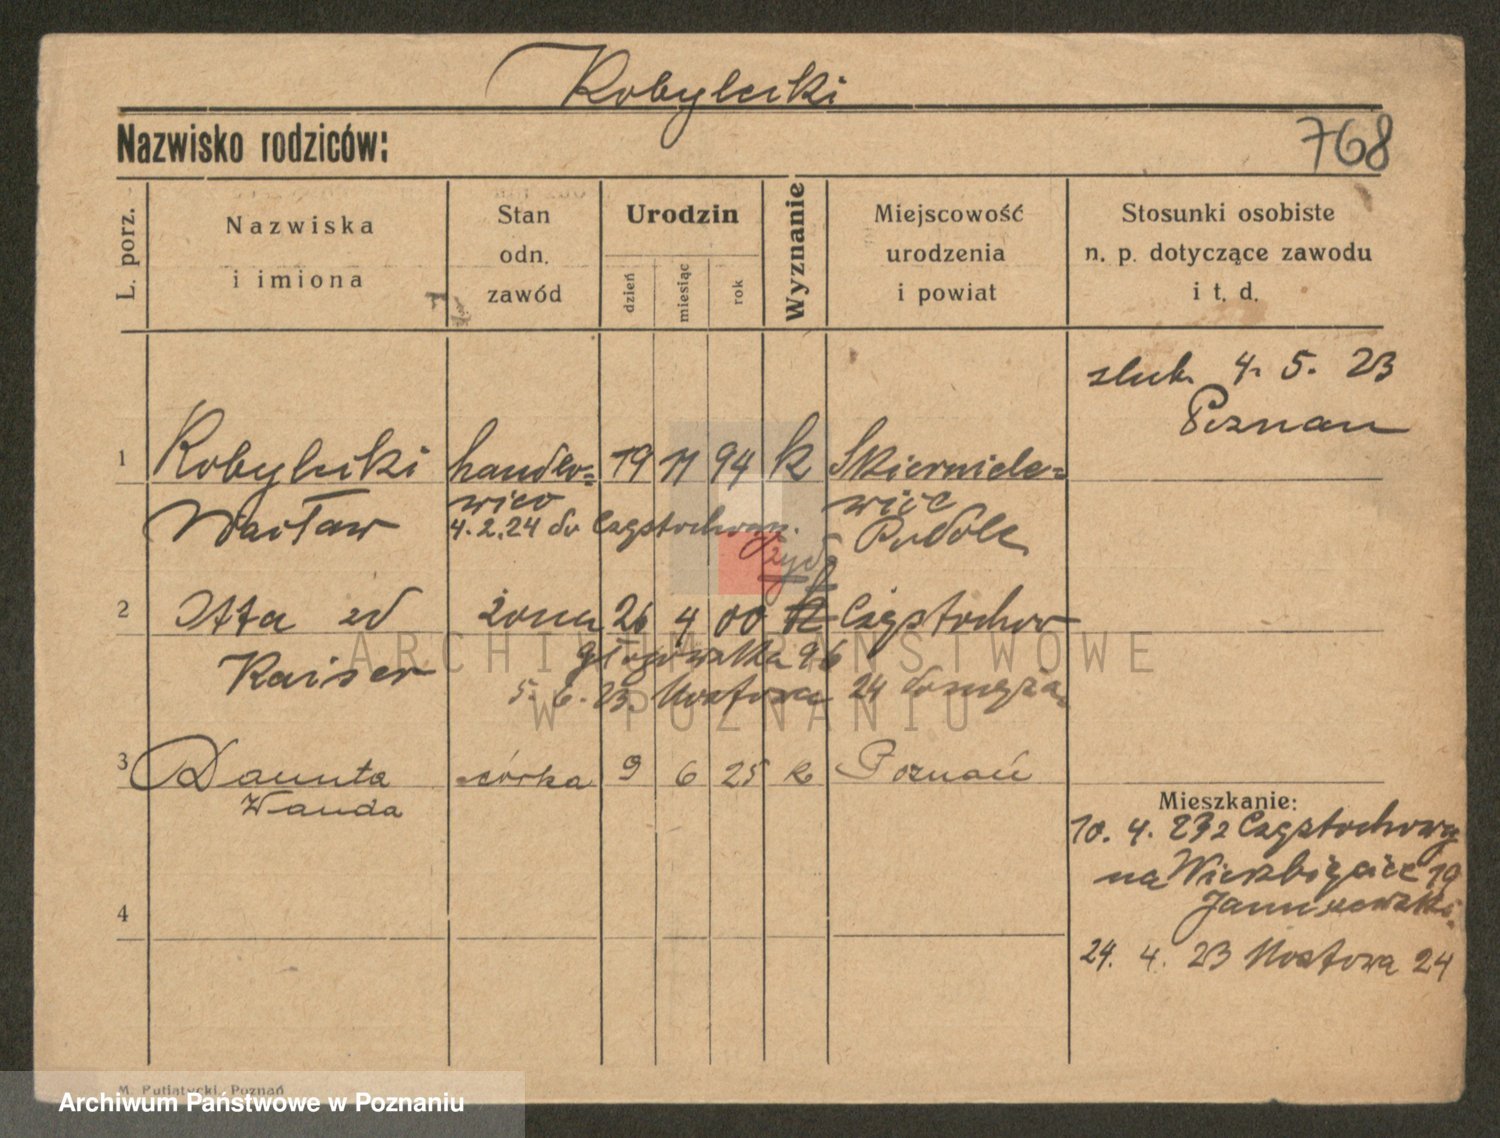 Kobylecki
Nazwisko rodziców:
768
L. porz.
Nazwiska
i imiona
Stan
odn.
zawód
Urodzin
dzień
miesiąc
rok
Wyznanie
Miejscowość
urodzenia
i powiat
Stosunki osobiste
n. p. dotyczące zawodu
i t. d.
slub. 4. 5. 23
Poznan
1 Kobylecki handlo= 19 11 94 k
Wacław wiec
4.2.24 do Częstochowy.
żyd.
2 Itta zd żona 26 4 00 Częstochow
Kaiser
96
5. 6. 23. Mostowa 24
3 Danuta córka 9 6 25 k Poznań
Wanda
Mieszkanie:
10. 4. 23 z Częstochowy
na Wierzbięcice 19
Januszewski.
24. 4. 23 Mostowa 24
4
ARCHIWUM PAŃSTWOWE
W POZNANIU
M. Putiatycki, Poznań
Archiwum Państwowe w Poznaniu